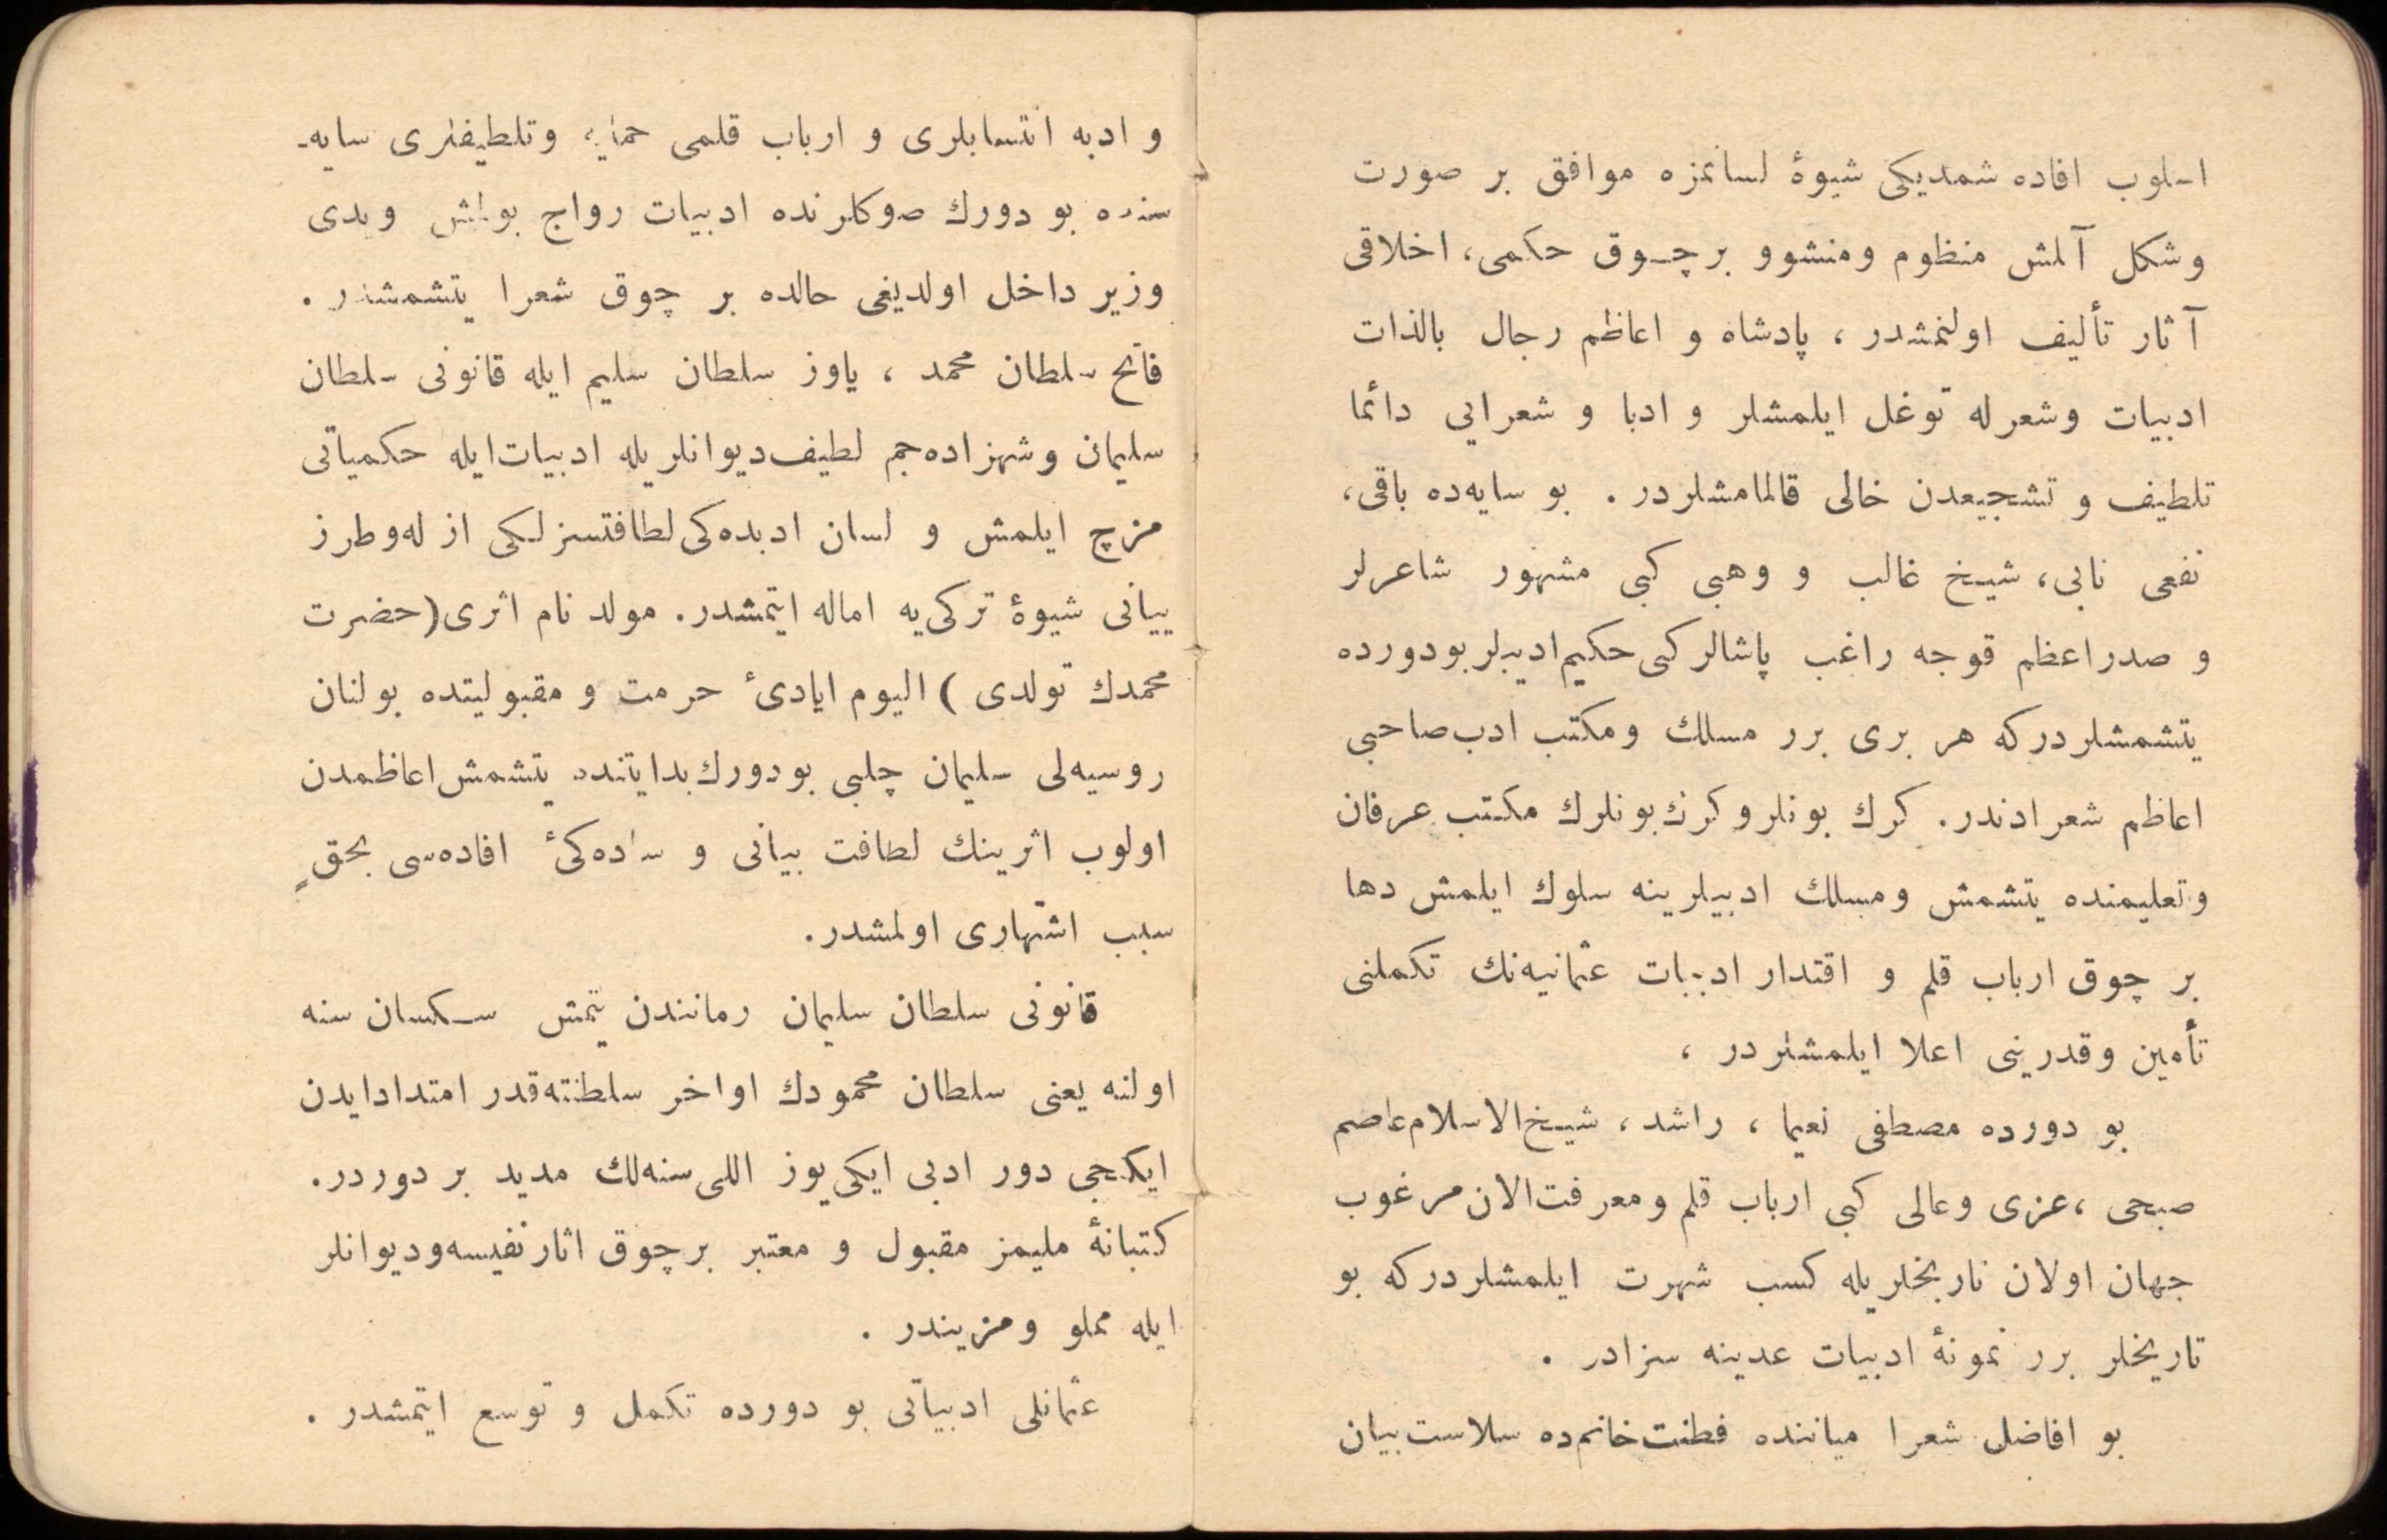 و ادبه انتسابلری و ارباب قلمی حمایه وتلطیفلری سایه-
سنده بو دورك صوكلرنده ادبیات رواج بولمش ویدی
وزیر داخل اولدیغی حالده بر چوق شعرا یتشمشدر .
فاتح سلطان محمد ، یاوز سلطان سلیم ایله قانونی سلطان
سلیمان وشهزاده‌جم لطیف‌دیوانلریله ادبیات‌ایله حکمیاتی
مزج ایلمش و لسان ادبده‌کی لطافتسزلکی ازاله‌وطرز
بیانی شیوهٔ ترکی‌یه اماله ایتمشدر. مولد نام اثری(حضرت
محمدك تولدی ) الیوم ایادیٔ حرمت و مقبولیتده بولنان
روسیه‌لی سلیمان چلبی بودورك‌بدایتنده یتشمش‌اعاظمدن
اولوب اثرینك لطافت بیانی و ساده‌کیٔ افاده‌سی بحقٍ
سبب اشتهاری اولمشدر.
قانونی سلطان سلیمان رماننندن یتمش سکسان سنه
اولنه یعنی سلطان محمودك اواخر سلطنته‌قدر امتدادایدن
ایکنجی دور ادبی ایکی‌یوز اللی‌سنه‌لك مدید بر دوردر.
کتبانهٔ ملیمز مقبول و معتبر برچوق اثارنفیسه‌ودیوانلر
ایله مملو ومزیندر .
عثمانلی ادبیاتی بو دورده تکمل و توسع ایتمشدر .
اسلوب افاده شمدیکی شیوهٔ لسانمزه موافق بر صورت
وشکل آلمش منظوم ومنشوو برچوق حکمی، اخلاقی
آثار تألیف اولنمشدر ، پادشاه و اعاظم رجال بالذات
ادبیات وشعرله توغل ایلمشلر و ادبا و شعرایی دائما
تلطیف و تشجیعدن خالی قالمامشلردر . بو سایه‌ده باقی،
نفعی نابی، شیخ غالب و وهبی کبی مشهور شاعرلر
و صدراعظم قوجه راغب پاشالرکبی حکیم‌ادیبلربودورده
یتشمشلردرکه هر بری برر مسلك ومکتب ادب‌صاحبی
اعاظم شعرادندر. کرك بونلروکرك‌بونلرك مکتب عرفان
وتعلیمنده یتشمش ومسلك ادبیلرینه سلوك ایلمش دها
بر چوق ارباب قلم و اقتدار ادبیات عثمانیه‌نك تکملنی
تأمین وقدرینی اعلا ایلمشلردر ،
بو دورده مصطفی نعیما ، راشد ، شیخ‌الاسلام‌عاصم
صبحی ،عزی وعالی کبی ارباب قلم ومعرفت‌الان‌مرغوب
جهان اولان تاریخلریله کسب شهرت ایلمشلردرکه بو
تاریخلر برر نمونهٔ ادبیات عدینه سزادر .
بو افاضل شعرا میاننده فطنت‌خانم‌ده سلاست‌بیان